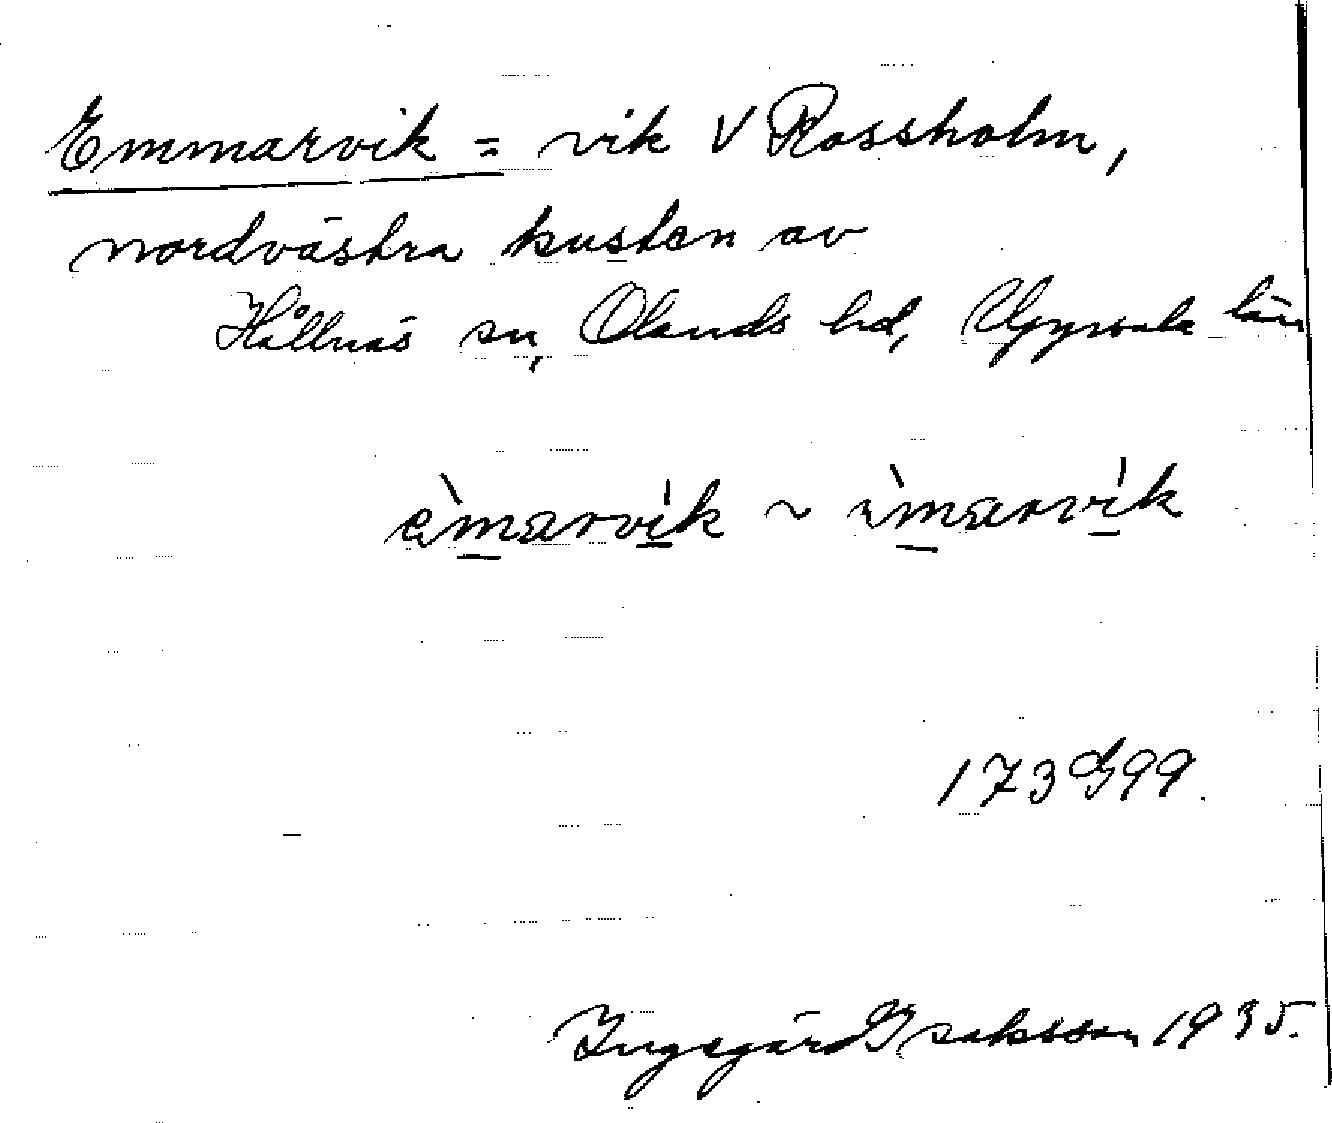 Emmarvik = vik V Rossholm,
nordvästra kusten av
Hållnäs sn, Olands hd, Uppsala län
èmarvik ~ ìmarvik
173 G 99.
Ingegärd Isaksson 1935.